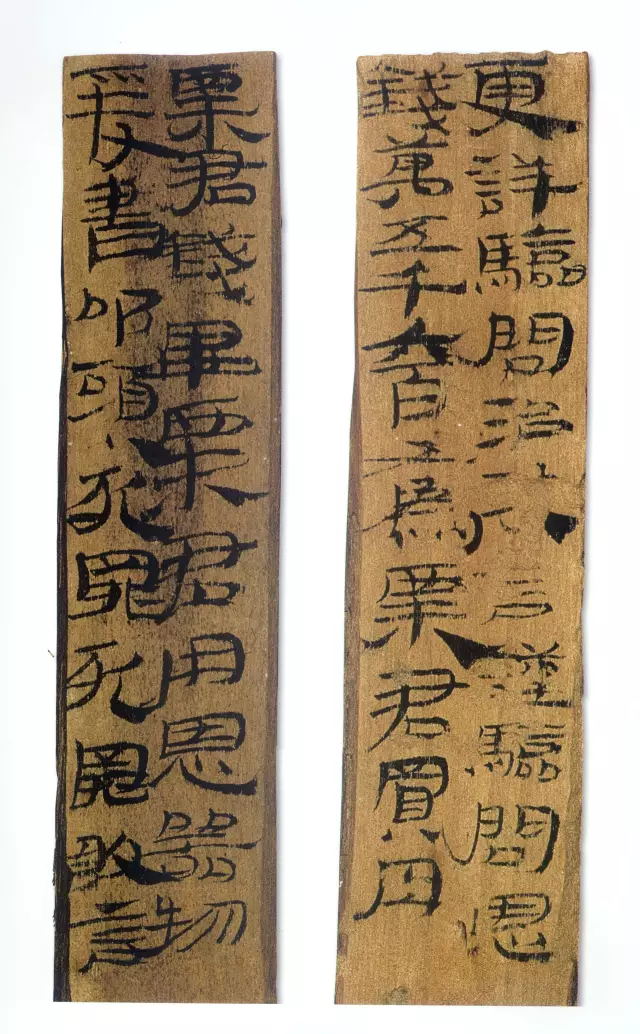 更詳驗問治決言謹驗問恩
錢萬五千六百五為粟君買肉
粟君錢畢粟君用恩器物
爰書叩頭死罪死罪敢言